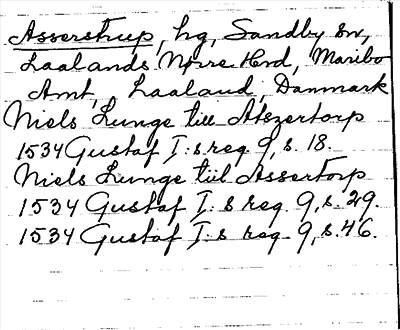 Asserstrup, hg, Sandby sn,
Laalands Nørre Hrd, Maribo
Amt, Laaland, Danmark
Niels Lunge till Atszertorp
1534 Gustaf I:s reg 9, s. 18.
Niels Lunge till Assertorp
1534 Gustaf I:s reg. 9, s. 29.
1534 Gustaf I:s reg. 9, s. 46.